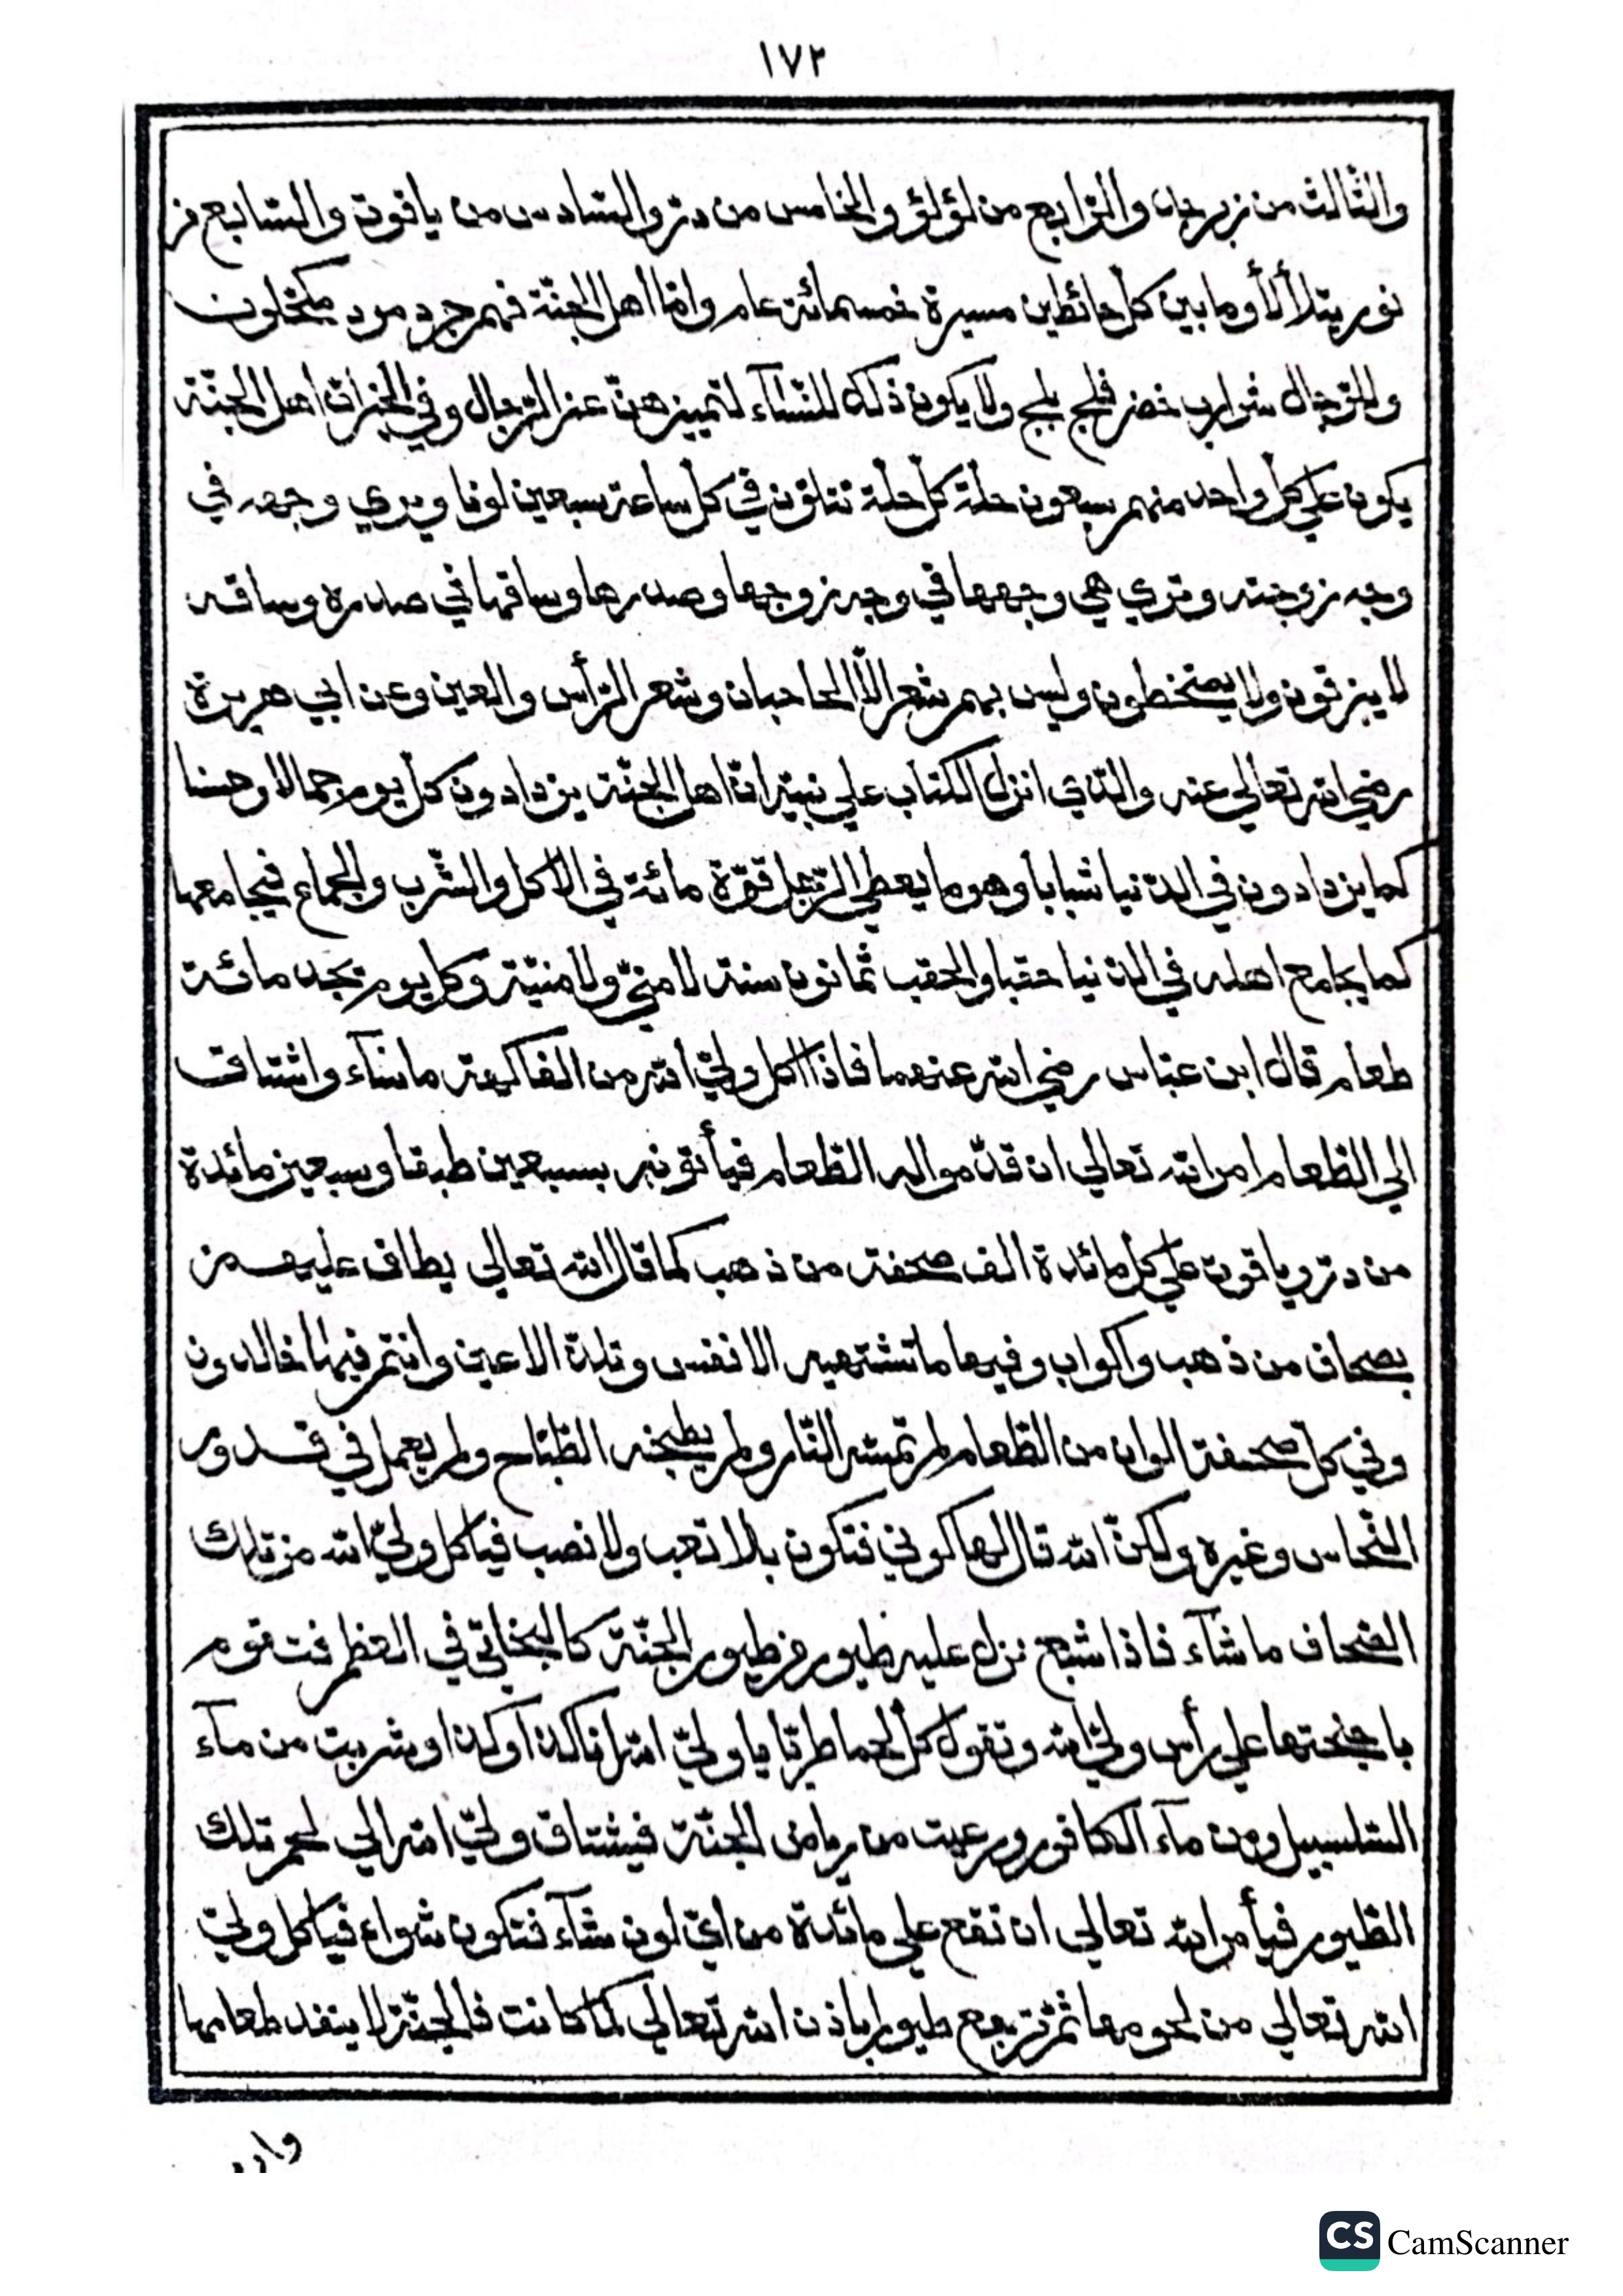 ١٧٢
والثّالث من زبرجد والرّابع من لؤلؤ والخامس من درّ والسّادس من ياقوت والسّابع من
نور يتلألأ وما بين كلّ حائطين مسيرة خمسمائة عام وامّا اهل الجنّة فهم جرد مرد مكحّلون
وللرّجال شوارب خضر فلج بلج ولا يكون ذلك للنّسآء لتمييزهنّ عن الرّجال وفي الخبر انّ اهل الجنّة
يكون علي كلّ واحد منهم سبعون حلّة كلّ حلّة تتلوّن في كلّ ساعة سبعين لونا ويري وجهه في
وجه زوجته وتري هي وجهها في وجه زوجها وصدرها وساقها في صدره وساقه
لا يبزقون ولا يمتخطون وليس بهم شعر الّا الحاجبان وشعر الرّأس والعين وعن ابي هريرة
رضي الله تعالي عنه والّذي انزل الكتاب علي نبيّه انّ اهل الجنّة يزدادون كلّ يوم جمالا وحسنا
كما يزدادون في الدّنيا شبابا وهرما يعطي الرّجل قوّة مائة في الاكل والشّرب والجماع فيجامعها
كما يجامع اهله في الدّنيا حقبا والحقب ثمانون سنة لا منيّ ولا منيّة وكلّ يوم يجد مائة
طعام قال ابن عبّاس رضي الله عنهما فاذا اكل وليّ الله من الفاكهة ما شآء واشتاق
الي الطّعام امر الله تعالي ان قدّموا اليه الطّعام فيأتونه بسبعين طبقا وسبعين مائدة
من درّ وياقوت علي كلّ مائدة الف صحفة من ذهب كما قال الله تعالي يطاف عليهم
بصحاف من ذهب واكواب وفيها ما تشتهيه الانفس وتلذّ الاعين وانتم فيها خالدون
وفي كلّ صحفة الوان من الطّعام لم تمسّه النّار ولم يطبخه الطّبّاخ ولم يعمل في قدور
النّحاس وغيره ولكنّ الله قال لها كوني فتكون بلا تعب ولا نصب فيأكل وليّ الله من تلك
الصّحاف ما شآء فاذا شبع نزل عليه طيور من طيور الجنّة كالبخاتيّ في العظم فتقوم
باجنحتها علي رأس وليّ الله وتقول كلّ لحما طريّا يا وليّ الله انا كذا وكذا وشربت من مآء
السّلسبيل ومن مآء الكافور ورعيت من رياض الجنّة فيشتاق وليّ الله الي لحم تلك
الطّيور فيأمر الله تعالي ان تقع علي مائدة من ايّ لون شآء فتكون شواء فيأكل وليّ
الله تعالي من لحومها ثمّ ترجع طيورا باذن الله تعالي كما كانت فالجنّة لا ينفد طعامها
CS CamScanner